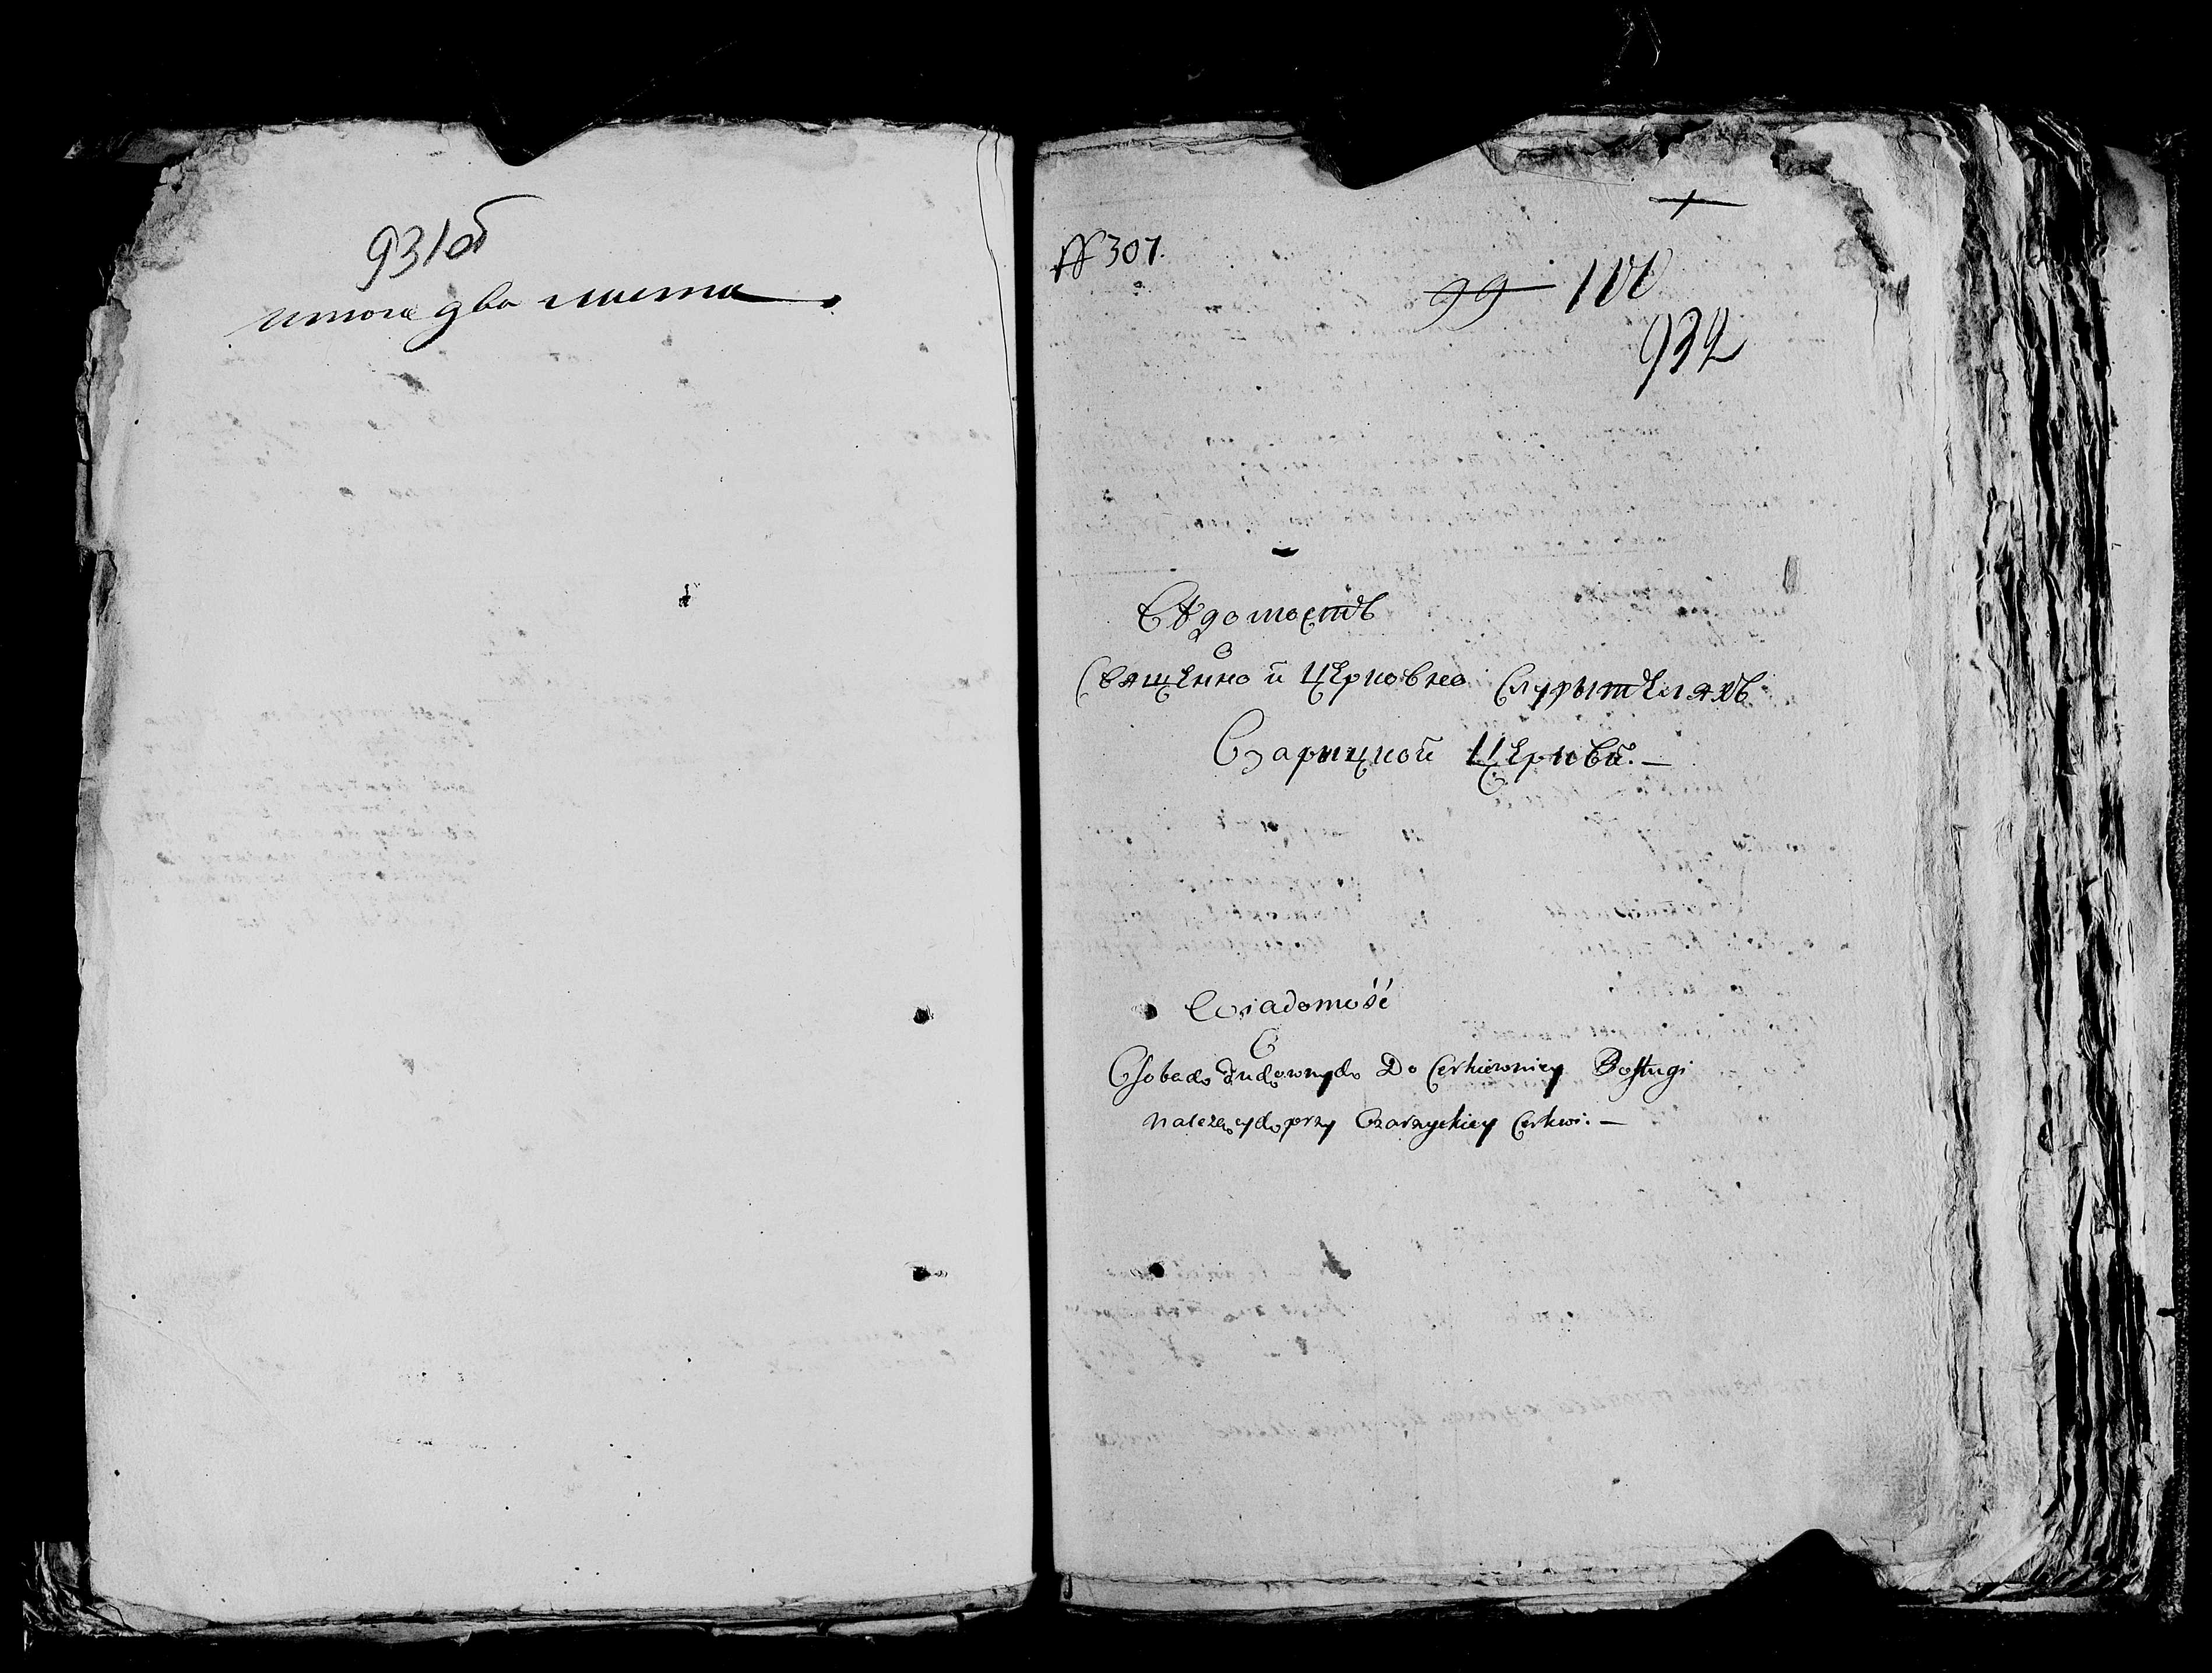 931об
итого два листа
№ 307.
+
99 100
932
Вѣдомость
О
Священно и Церковно Служытеляхъ
Озарицкой Церкви. —
Wiadomość
O
Osobach Duchownych Do Cerkiewniey Posługi
należących przy Ozaryckiey Cerkwi. —